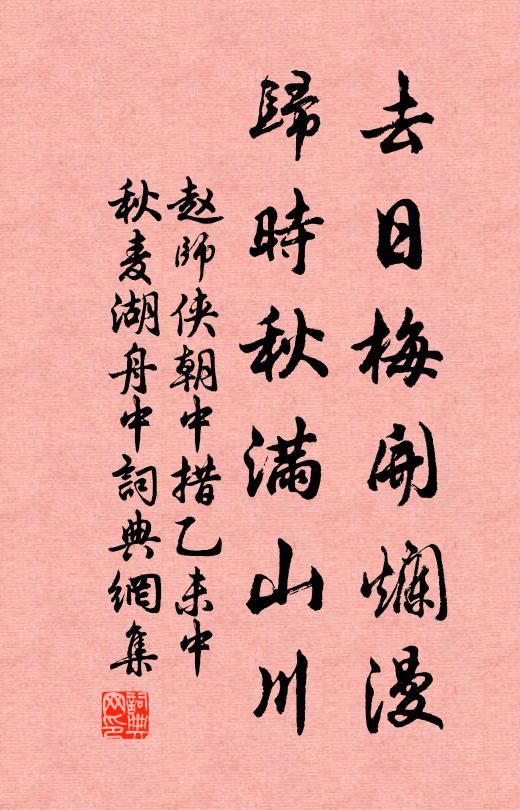 去日梅開爛漫
歸時秋滿山川
赵師侠朝中措乙未中
秋麦湖舟中詞典網集
詞典網印